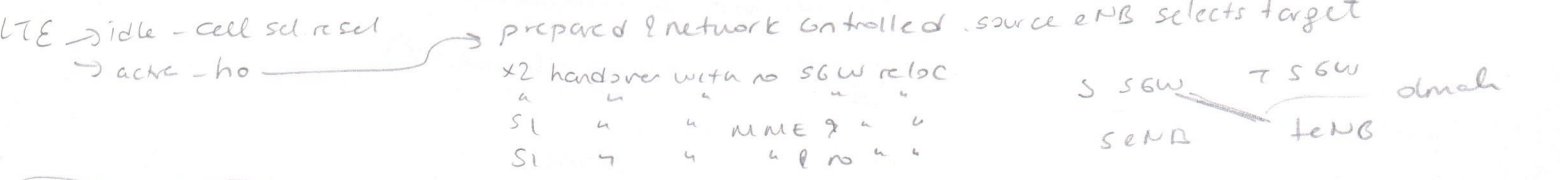 LTE → idle - cell sel resel
→ active - ho → prepared & network controlled. source eNB selects target
X2 handover with no SGW reloc
" " " " "
S1 " " MME & " "
S1 " " " & no " "
S SGW T SGW
SeNB teNB olmalı